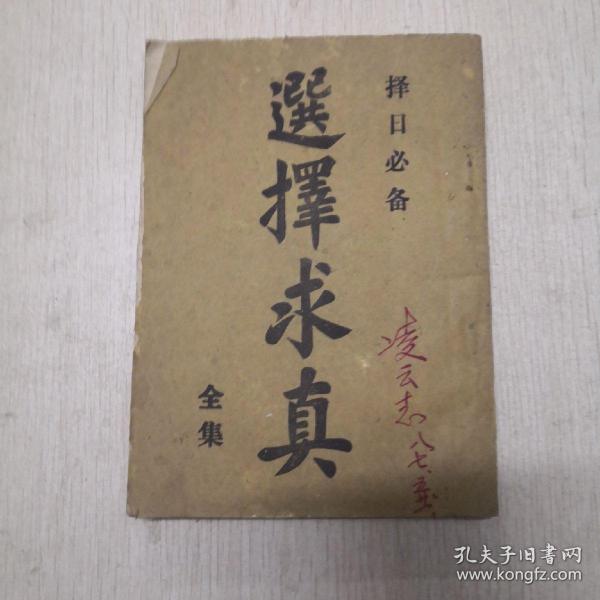 择日必备
選擇求真
全集
凌云志 八七.五
孔夫子旧书网
www.kongfz.com